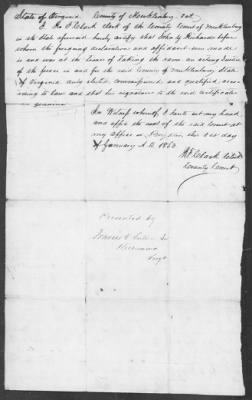 State of Virginia County of Mecklenburg Sct
I, Clerk of the County Court of Mecklenburg
in the State aforesaid hereby certify that John G Richards before
whom the foregoing declaration and affidavit were made
is and was at the time of taking the same an acting Justice
of the peace in and for the said County of Mecklenburg State
of Virginia duly elected, commissioned, and qualified, according
to law and that his signature to the said certificate
is genuine
In Witness whereof, I have set my hand
and affix the seal of the said Court at
my office in this 21st day
of January A.D. 1853
Clerk
County Court
Presented by
Francis
Richmond
Virga